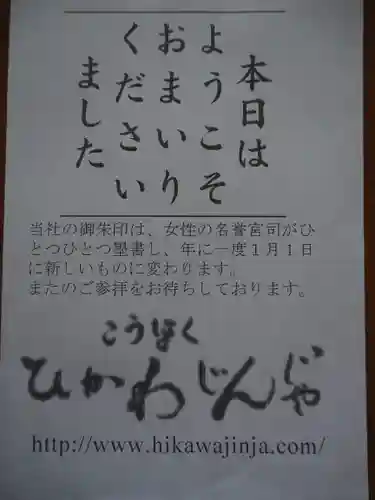 本日は
ようこそ
おまいり
ください
ました
当社の御朱印は、女性の名誉宮司がひ
とつひとつ墨書し、年に一度1月1日
に新しいものに変わります。
またのご参拝をお待ちしております。
こうほく
ひかわじんじゃ
http://www.hikawajinja.com/